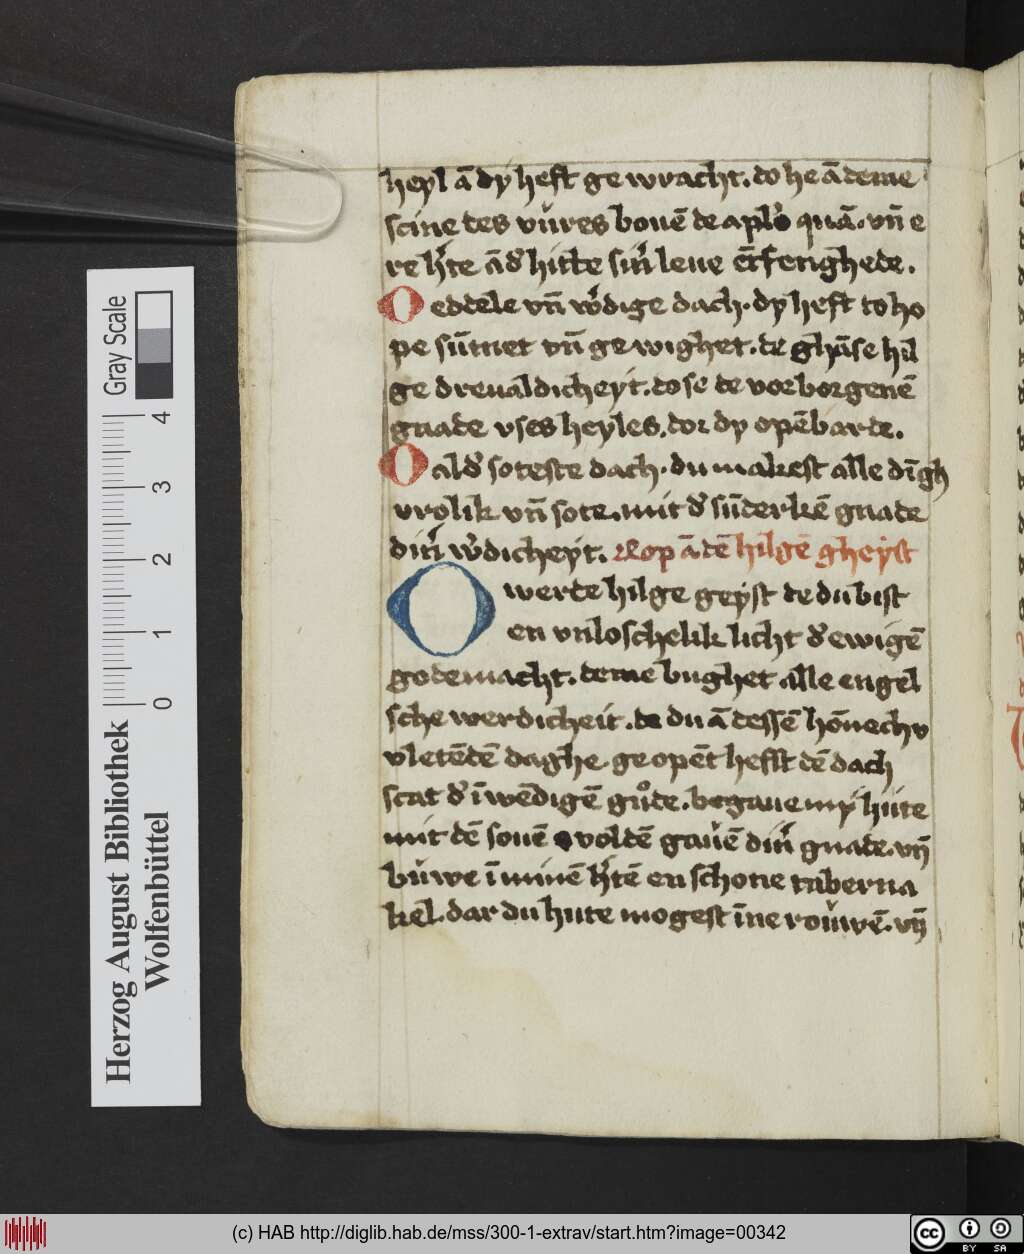 heyl ā dy heft ge wracht. do he ā deme
scine des vůres bouē de aplo quā. vn̄ e
re h̾te ād̾ hitte sin̾ leue ētfenghede.
O eddele vn̄ w̾dige dach. dy heft to ho
pe sūmet vn̄ ge wighet. de ghāse hil
ge dreualdicheyt. do se de vorborgenē
gnade vses heyles. dor dy opēbarde.
O ald̾ soteste dach. du makest alle dīgh
vrolik vn̄ sote. mit d̾ sūderkē gnade
din̾ w̾dicheyt. Rop ā dē hilgē gheyst
O werde hilge geyst de du bist
en vnloschelik licht d̾ ewigē
gode macht. deme bughet alle engel
sche werdicheit. de du ā dessē hōnechv
vletēdē daghe. ge opēt hefft dē dach
scat d̾ īwēdigē gůde. begaue my hute
mit dē souē voldē gauē din̾ gnade. vn̄
buwe ī minē h̾tē en schone taberna
kel. dar du hute mogest īne rouwē. vn̄
Gray Scale
4
3
2
1
0
Herzog August Bibliothek
Wolfenbüttel
(c) HAB http://diglib.hab.de/mss/300-1-extrav/start.htm?image=00342
cc BY SA